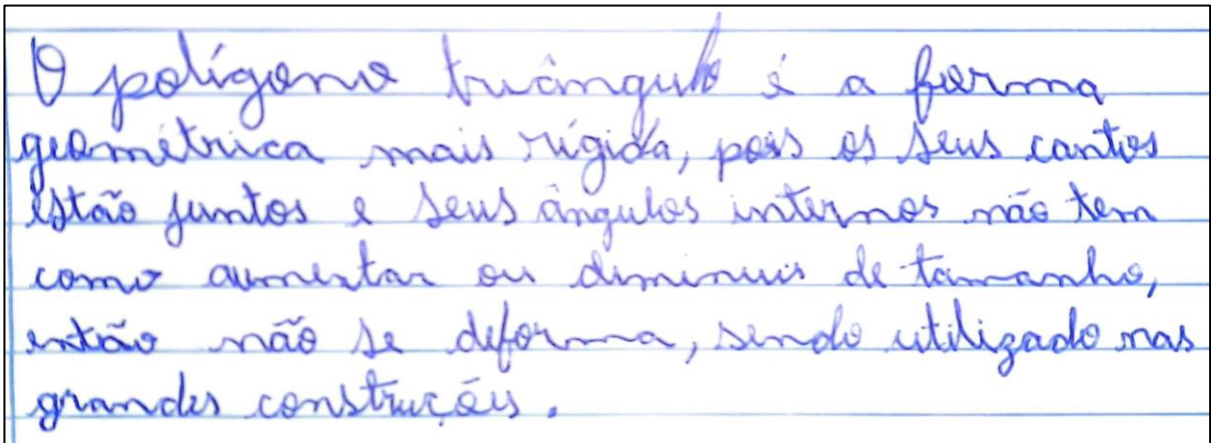 O polígono triângulo é a forma
geométrica mais rígida, pois os seus cantos
estão juntos e seus ângulos internos não tem
como aumentar ou diminuir de tamanho,
então não se deforma, sendo utilizado nas
grandes construções.